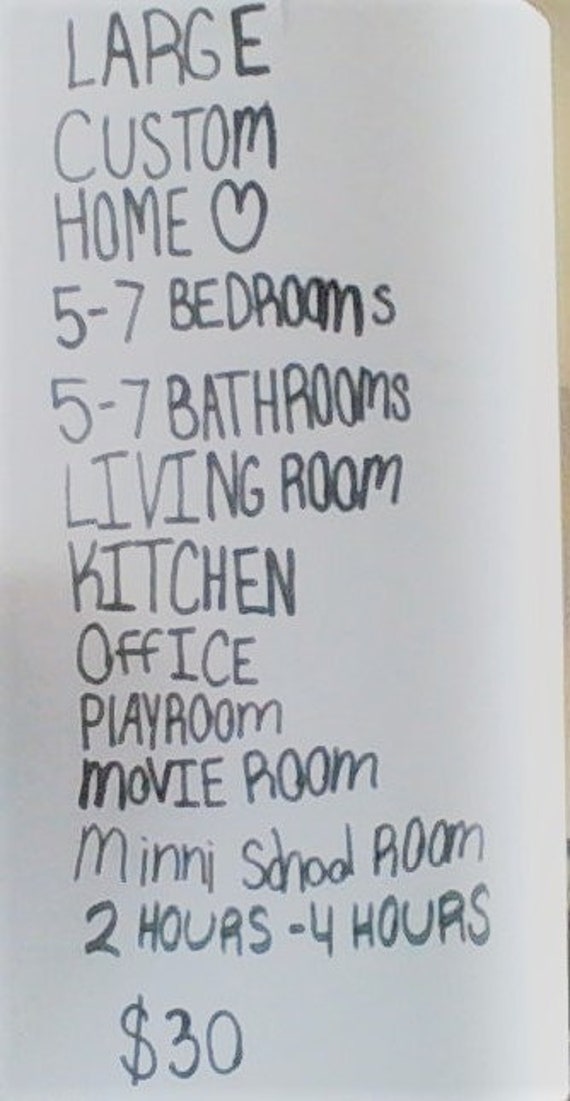 LARGE
CUSTOM
HOME ♡
5-7 BEDROOMS
5-7 BATHROOMS
LIVING ROOM
KITCHEN
OFFICE
PLAYROOM
MOVIE ROOM
Minni School ROOM
2 HOURS - 4 HOURS
$30